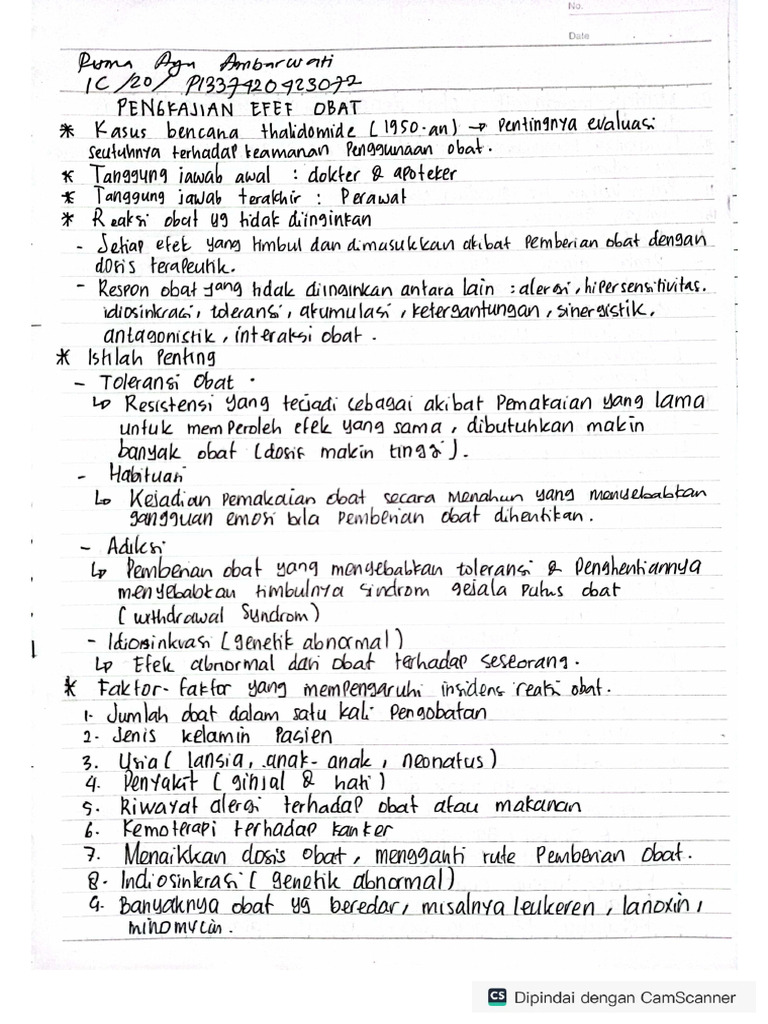 No.
Date
Ayu Ambarwati
1C /20/ P1337420423072
PENGKAJIAN EFEF OBAT
* Kasus bencana thalidomide (1950-an) → Pentingnya evaluasi
seutuhnya terhadap keamanan Penggunaan obat.
* Tanggung jawab awal : dokter & apoteker
* Tanggung jawab terakhir : Perawat
* Reaksi obat yg tidak diinginkan
- Setiap efek yang timbul dan dimasukkan akibat Pemberian obat dengan
dosis terapeutik.
- Respon obat yang tidak diinginkan antara lain : alergi, hipersensitivitas.
idiosinkrasi, toleransi, akumulasi, ketergantungan, sinergistik,
antagonistik, interaksi obat.
* Istilah Penting
- Toleransi Obat .
↳ Resistensi yang terjadi sebagai akibat Pemakaian yang lama
untuk memperoleh efek yang sama, dibutuhkan makin
banyak obat (dosis makin tinggi).
- Habituasi
↳ Kejadian Pemakaian obat secara menahun yang menyebabkan
gangguan emosi bila Pemberian obat dihentikan.
- Adiksi
↳ Pemberian obat yang menyebabkan toleransi & Penghentiannya
menyebabkan timbulnya sindrom gejala Putus obat
(withdrawal Syndrom)
- Idiosinkrasi (genetik abnormal)
↳ Efek abnormal dari obat terhadap seseorang.
* Faktor-faktor yang mempengaruhi insidens reaksi obat.
1. Jumlah obat dalam satu kali Pengobatan
2. Jenis kelamin Pasien
3. Usia (lansia, anak-anak, neonatus)
4. Penyakit (ginjal & hati)
5. Riwayat alergi terhadap obat atau makanan
6. Kemoterapi terhadap kanker
7. Menaikkan dosis obat, mengganti rute Pemberian Obat.
8. Indiosinkrasi (genetik abnormal)
9. Banyaknya obat yg beredar, misalnya leukeren, lanoxin,
minomycin.
CS Dipindai dengan CamScanner